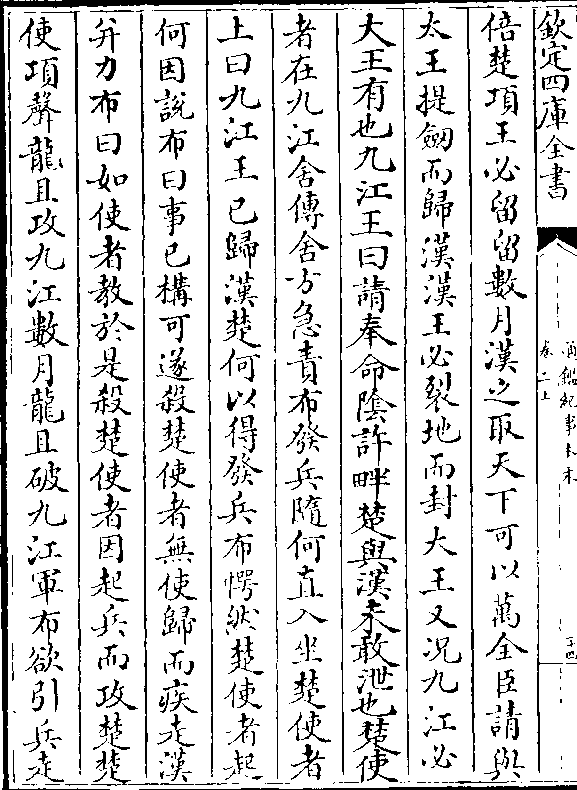 欽定四庫全書
通鑑紀事本末
卷二上
倍楚項王必留留數月漢之取天下可以萬全臣請與
大王提劒而歸漢漢王必裂地而封大王又况九江必
大王有也九江王曰請奉命陰許畔楚與漢未敢泄也楚使
者在九江舍傳舍方急責布發兵隨何直入坐楚使者
上曰九江王已歸漢楚何以得發兵布愕然楚使者起
何因說布曰事已構可遂殺楚使者無使歸而疾走漢
并力布曰如使者教於是殺楚使者因起兵而攻楚楚
使項聲龍且攻九江數月龍且破九江軍布欲引兵走